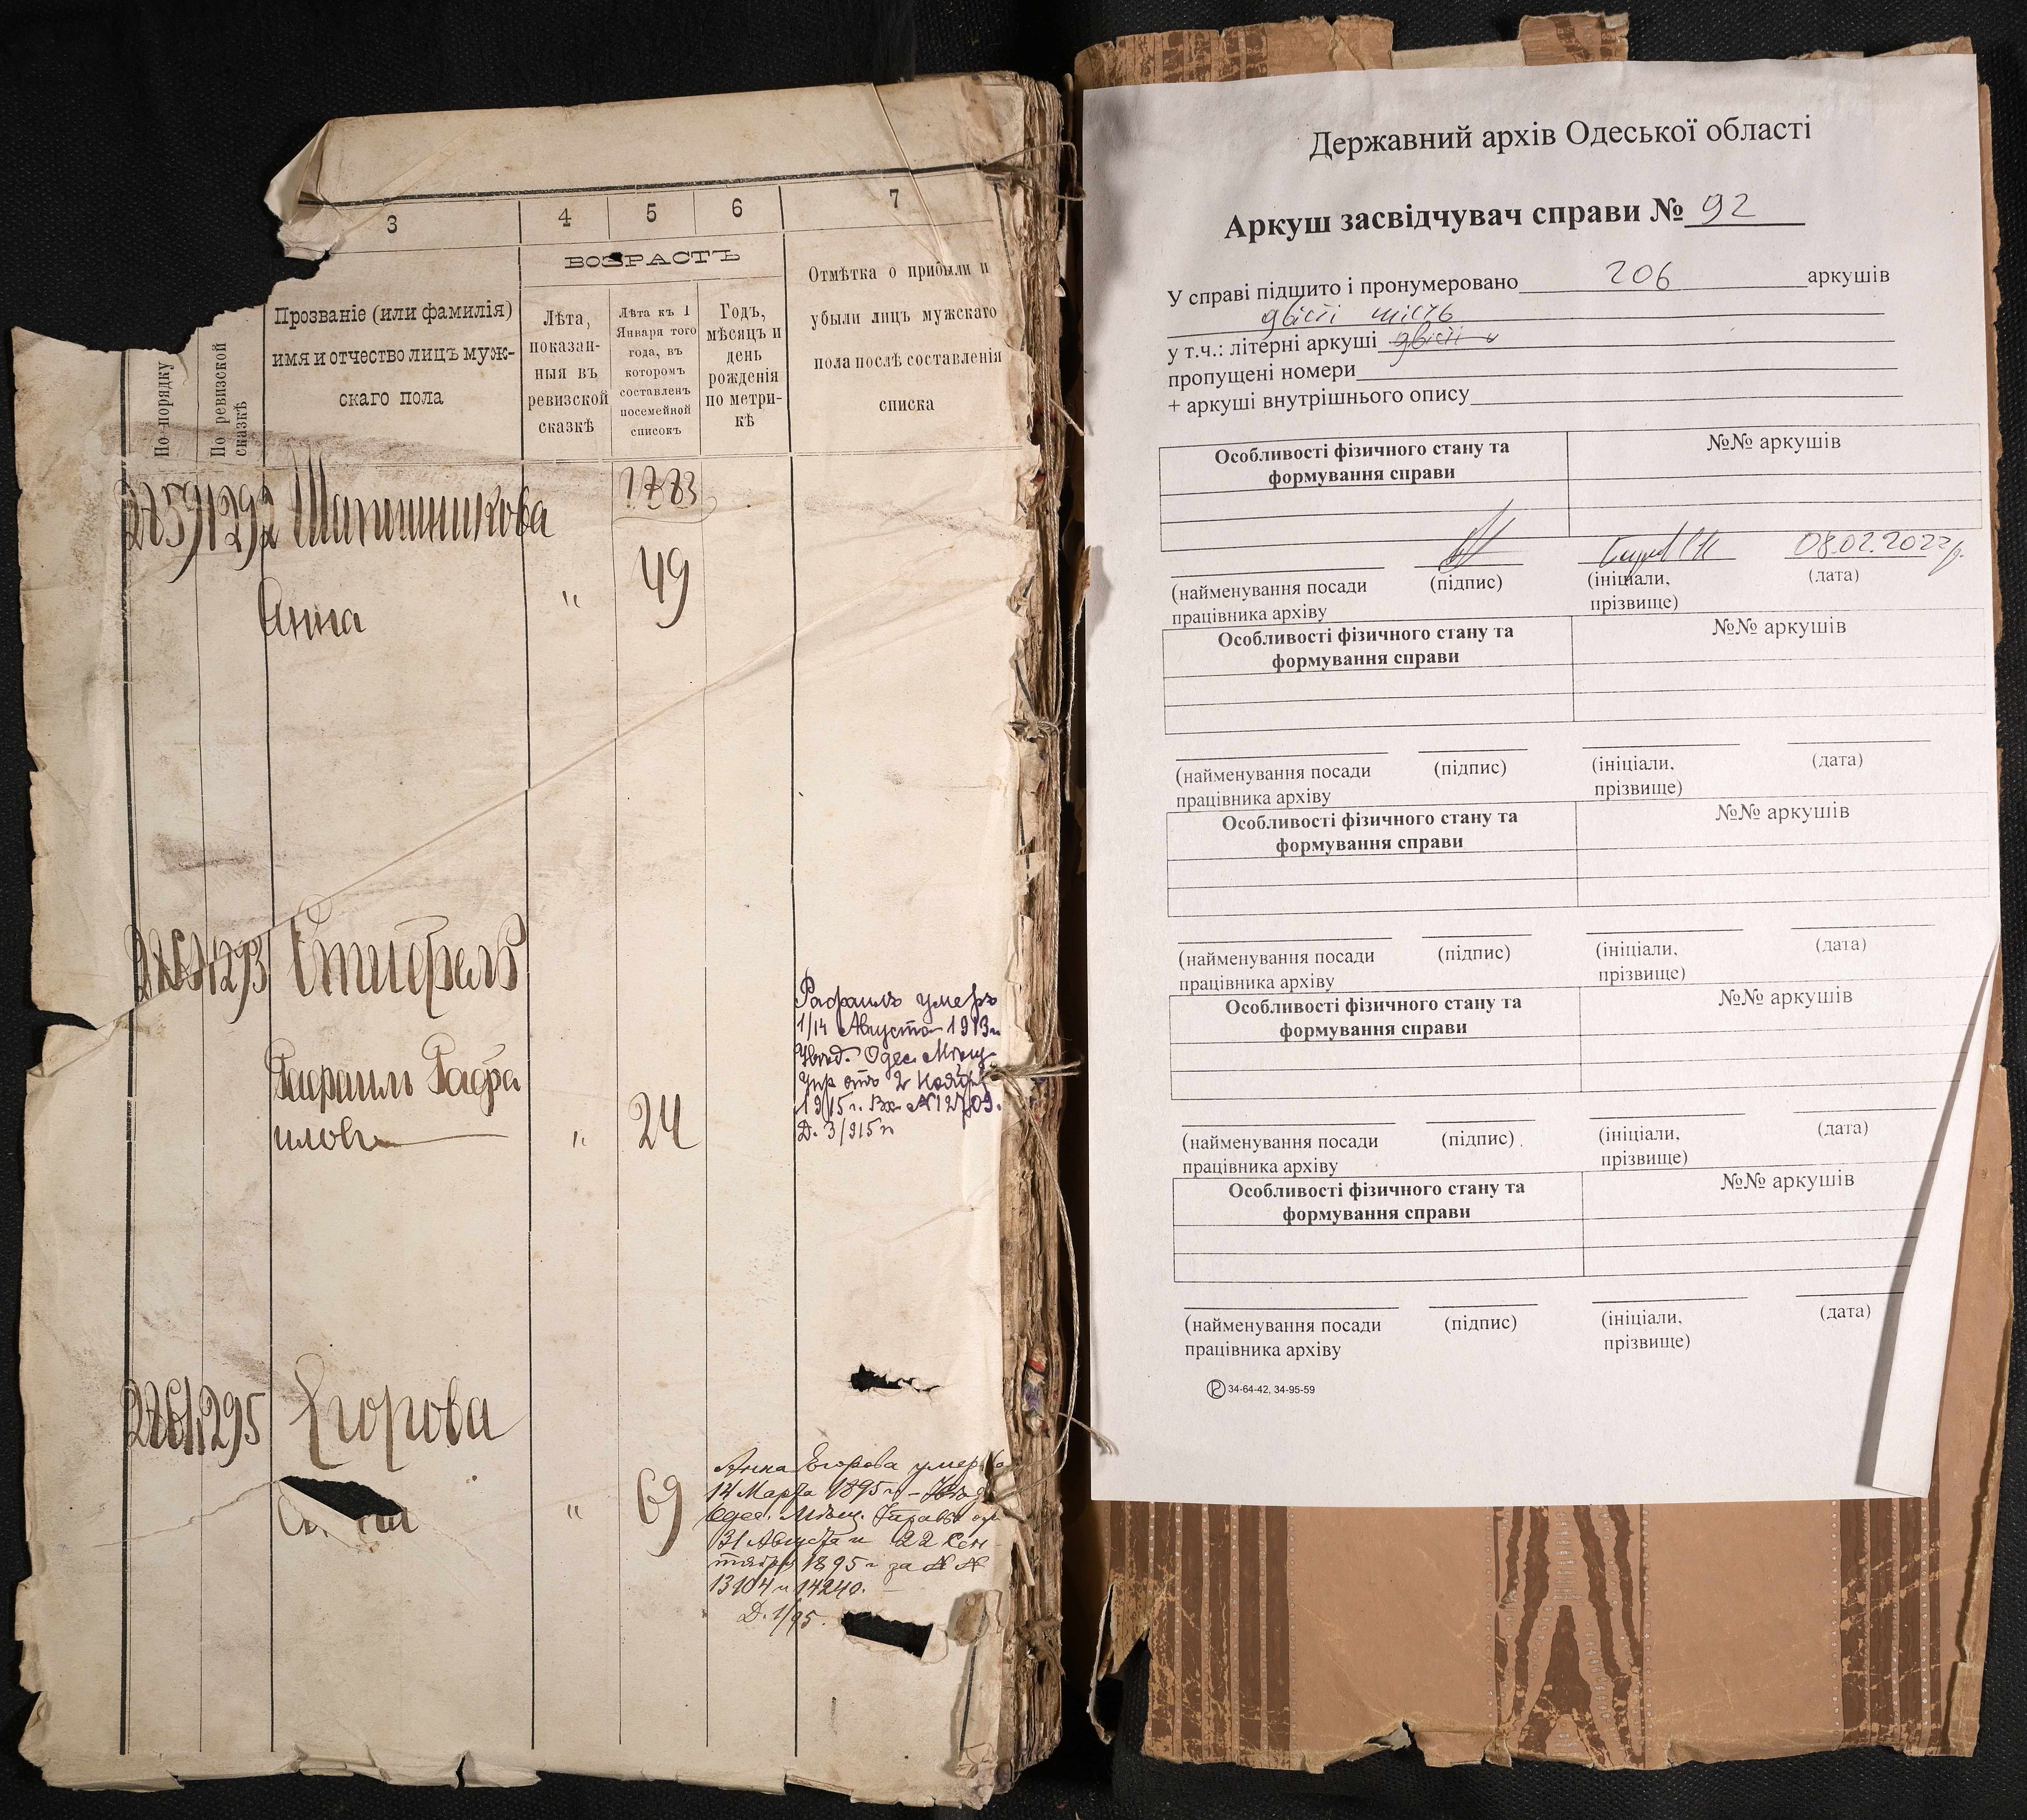 3 4 5 6 7
ВОЗРАСТЪ
По порядку
По ревизской сказкѣ
Прозваніе (или фамилія)
имя и отчество лицъ муж-
скаго пола
Лѣта,
показан-
ныя въ
ревизской
сказкѣ
Лѣта къ 1
Января того
года, въ
которомъ
составленъ
посемейной
списокъ
Годъ,
мѣсяцъ и
день
рожденія
по метри-
кѣ
Отмѣтка о прибыли и
убыли лицъ мужскаго
пола послѣ составленія
списка
1292
1883
Анна " 49
1293 Стифель
Рафаилъ Рафа
иловъ " 24
Рафаилъ умеръ
1/14 Августа 1913 г.
Увѣд. Одес. Мѣщ.
Упр. отъ 2 Ноября
1915 г. Вх. № 12709.
Д. 3/915 г.
1295 Егорова
" 69
Анна Егорова умерла
14 Марта 1895 г. – Увѣд.
Одес. Мѣщ. Управы от
31 Августа и 22 Сен-
тября 1895 г. за № №
13104 и 14240.
Д. 1/95.
Державний архів Одеської області
Аркуш засвідчувач справи № 92
У справі підшито і пронумеровано 206 аркушів
двісті шість
у т.ч.: літерні аркуші двісті
пропущені номери
+ аркуші внутрішнього опису
Особливості фізичного стану та
формування справи
№№ аркушів
08.02.2022р.
(найменування посади
працівника архіву
(підпис)
(ініціали,
прізвище)
(дата)
Особливості фізичного стану та
формування справи
№№ аркушів
(найменування посади
працівника архіву
(підпис)
(ініціали,
прізвище)
(дата)
Особливості фізичного стану та
формування справи
№№ аркушів
(найменування посади
працівника архіву
(підпис)
(ініціали,
прізвище)
(дата)
Особливості фізичного стану та
формування справи
№№ аркушів
(найменування посади
працівника архіву
(підпис)
(ініціали,
прізвище)
(дата)
Особливості фізичного стану та
формування справи
№№ аркушів
(найменування посади
працівника архіву
(підпис)
(ініціали,
прізвище)
(дата)
34-64-42, 34-95-59